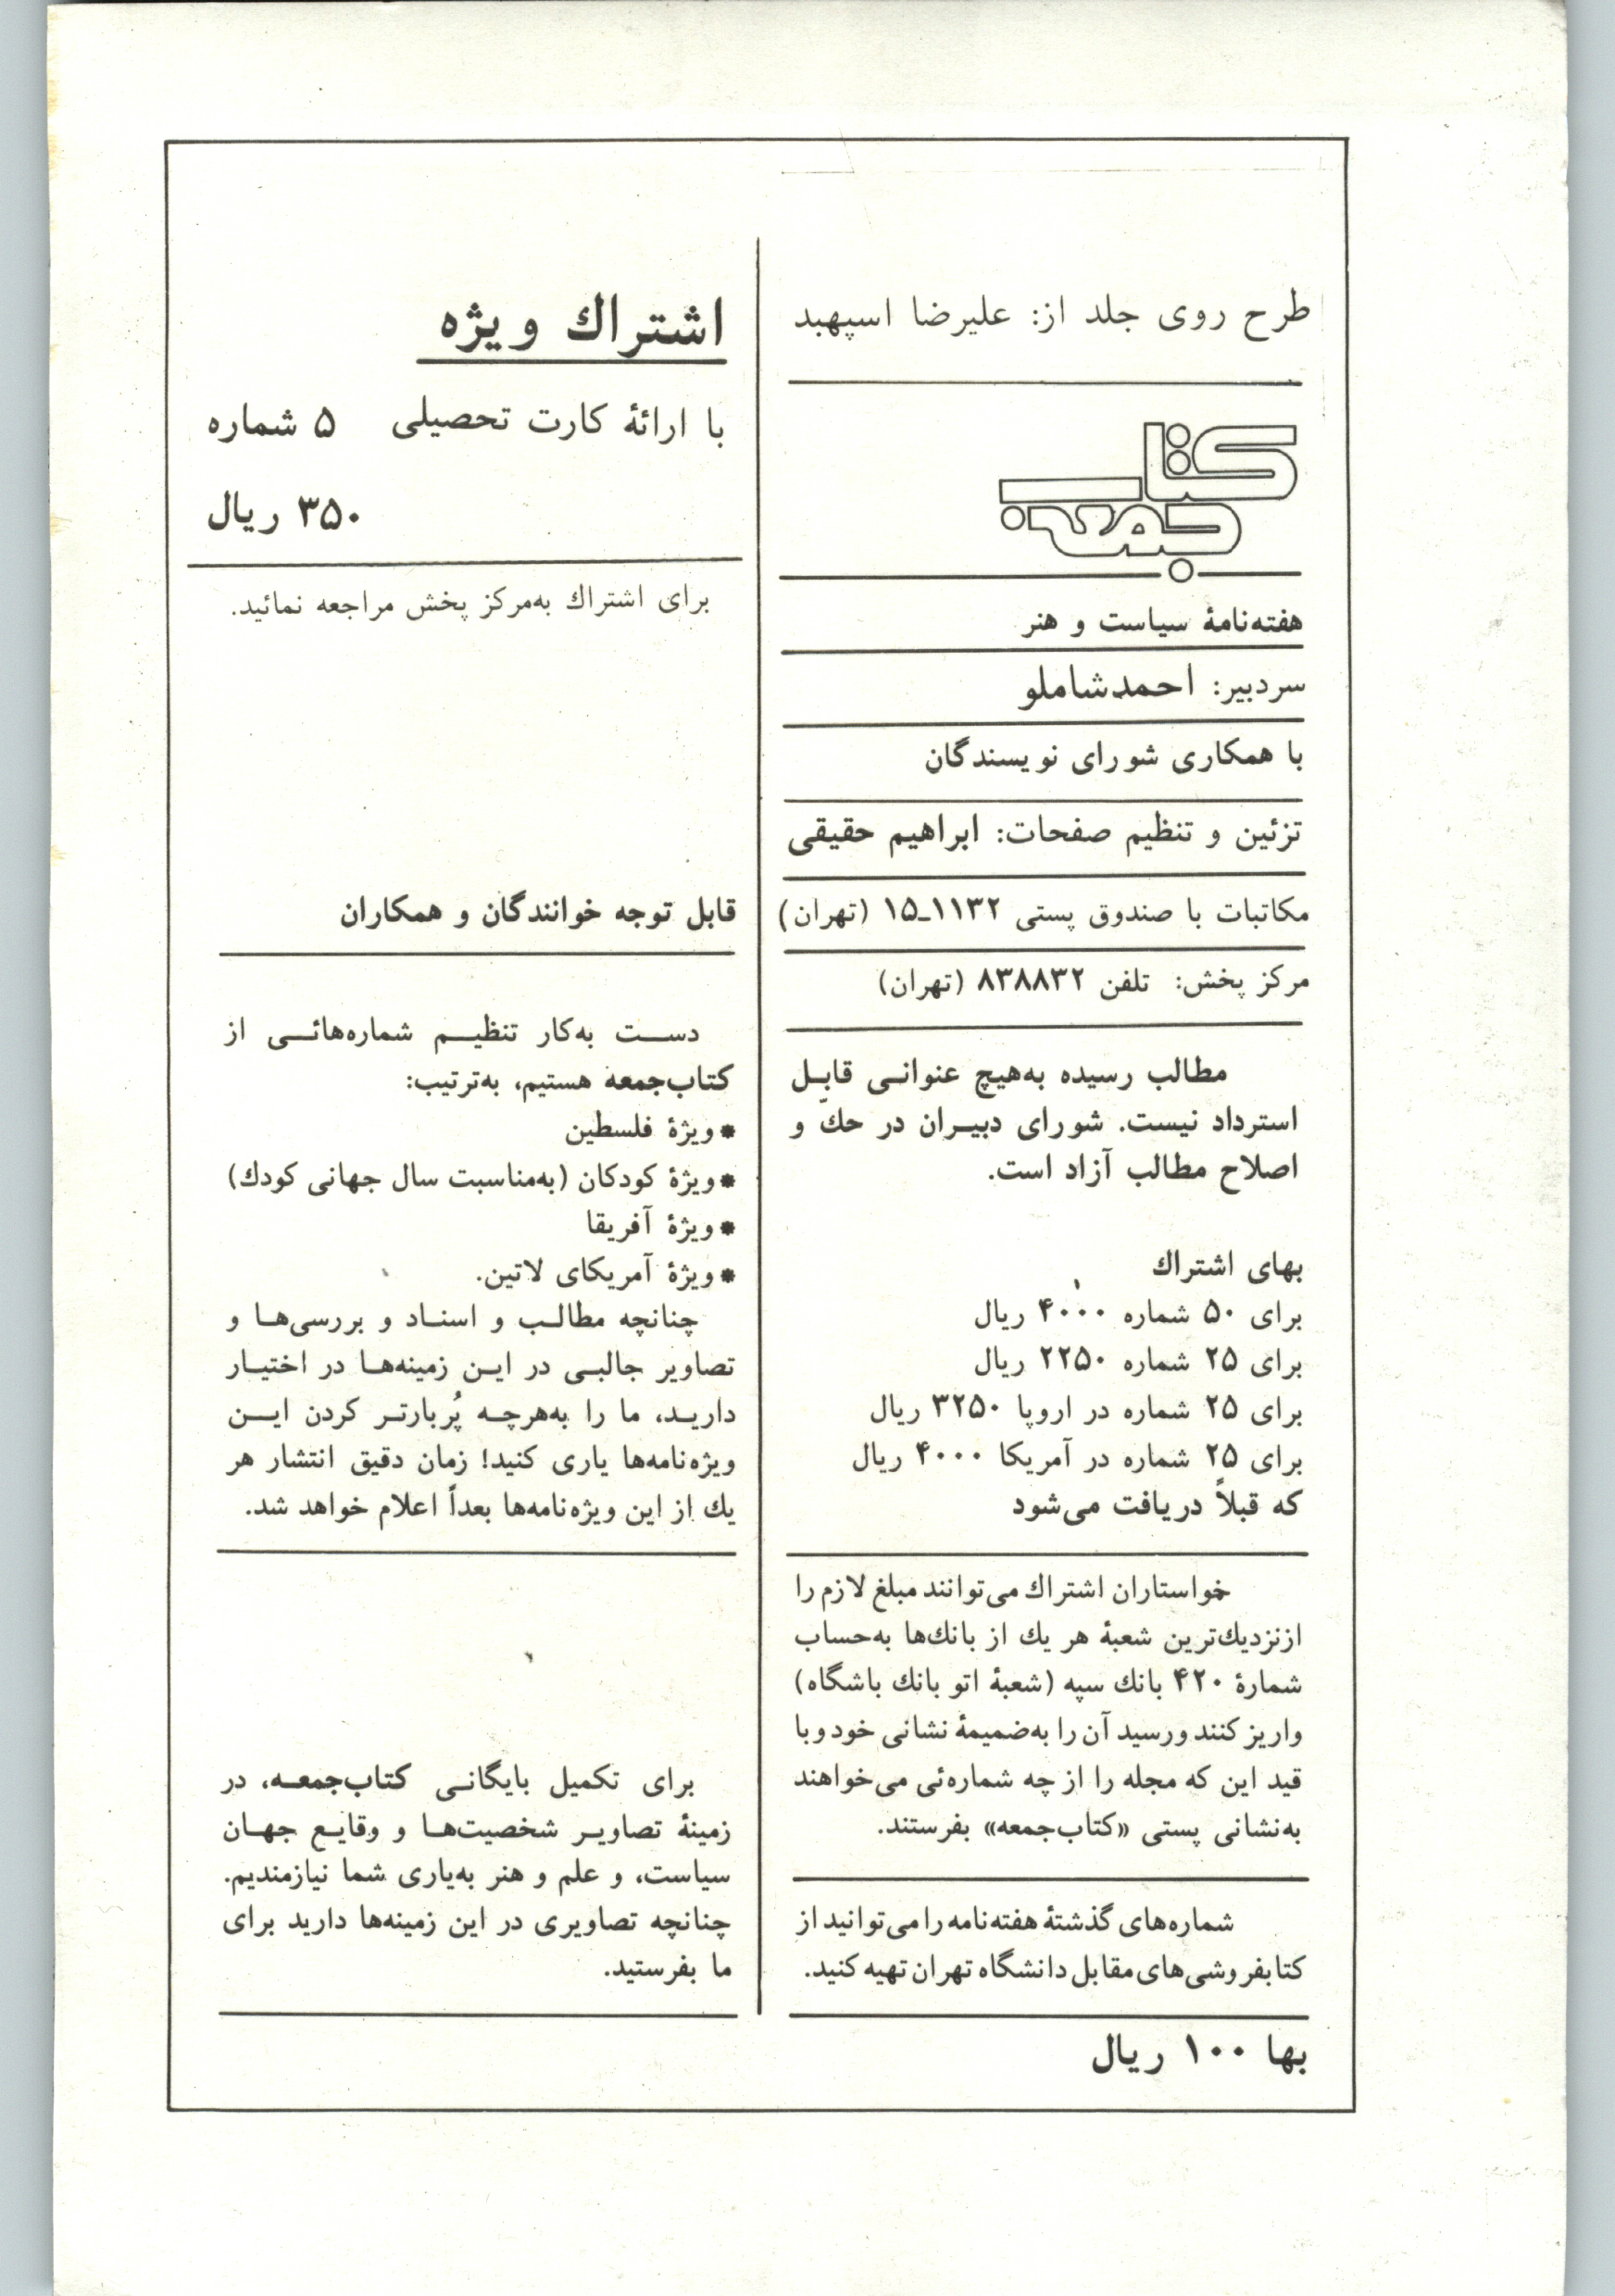 طرح روی جلد از: علیرضا اسپهبد
کتاب
جمعه
هفته‌نامهٔ سیاست و هنر
سردبیر: احمدشاملو
با همکاری شورای نویسندگان
تزئین و تنظیم صفحات: ابراهیم حقیقی
مکاتبات با صندوق پستی ۱۱۳۲ـ۱۵ (تهران)
مرکز پخش: تلفن ۸۳۸۸۳۲ (تهران)
مطالب رسیده به‌هیچ عنوانی قابل
استرداد نیست. شورای دبیران در حكّ و
اصلاح مطالب آزاد است.
بهای اشتراك
برای ۵۰ شماره ۴۰۰۰ ریال
برای ۲۵ شماره ۲۲۵۰ ریال
برای ۲۵ شماره در اروپا ۳۲۵۰ ریال
برای ۲۵ شماره در آمریکا ۴۰۰۰ ریال
که قبلاً دریافت می‌شود
خواستاران اشتراك می‌توانند مبلغ لازم را
ازنزدیك‌ترین شعبهٔ هر یك از بانك‌ها به‌حساب
شمارهٔ ۴۲۰ بانك سپه (شعبهٔ اتو بانك باشگاه)
واریز کنند ورسید آن را به‌ضمیمهٔ نشانی خود وبا
قید این که مجله را از چه شماره‌ئی می‌خواهند
به‌نشانی پستی «کتاب‌جمعه» بفرستند.
شماره‌های گذشتهٔ هفته‌نامه را می‌توانید از
کتابفروشی‌های مقابل دانشگاه تهران تهیه کنید.
بها ۱۰۰ ریال
اشتراك ویژه
با ارائهٔ کارت تحصیلی ۵ شماره
۳۵۰ ریال
برای اشتراك به‌مرکز پخش مراجعه نمائید.
قابل توجه خوانندگان و همکاران
دست به‌کار تنظیم شماره‌هائی از
کتاب‌جمعه هستیم، به‌ترتیب:
* ویژهٔ فلسطین
* ویژهٔ کودکان (به‌مناسبت سال جهانی کودك)
* ویژهٔ آفریقا
* ویژهٔ آمریکای لاتین.
چنانچه مطالب و اسناد و بررسی‌ها و
تصاویر جالبی در این زمینه‌ها در اختیار
دارید، ما را به‌هرچه پُربارتر کردن این
ویژه‌نامه‌ها یاری کنید! زمان دقیق انتشار هر
یك از این ویژه‌نامه‌ها بعداً اعلام خواهد شد.
برای تکمیل بایگانی کتاب‌جمعه، در
زمینهٔ تصاویر شخصیت‌ها و وقایع جهان
سیاست، و علم و هنر به‌یاری شما نیازمندیم.
چنانچه تصاویری در این زمینه‌ها دارید برای
ما بفرستید.